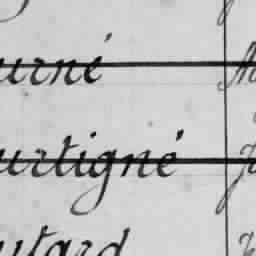 urné
urtigné
utard